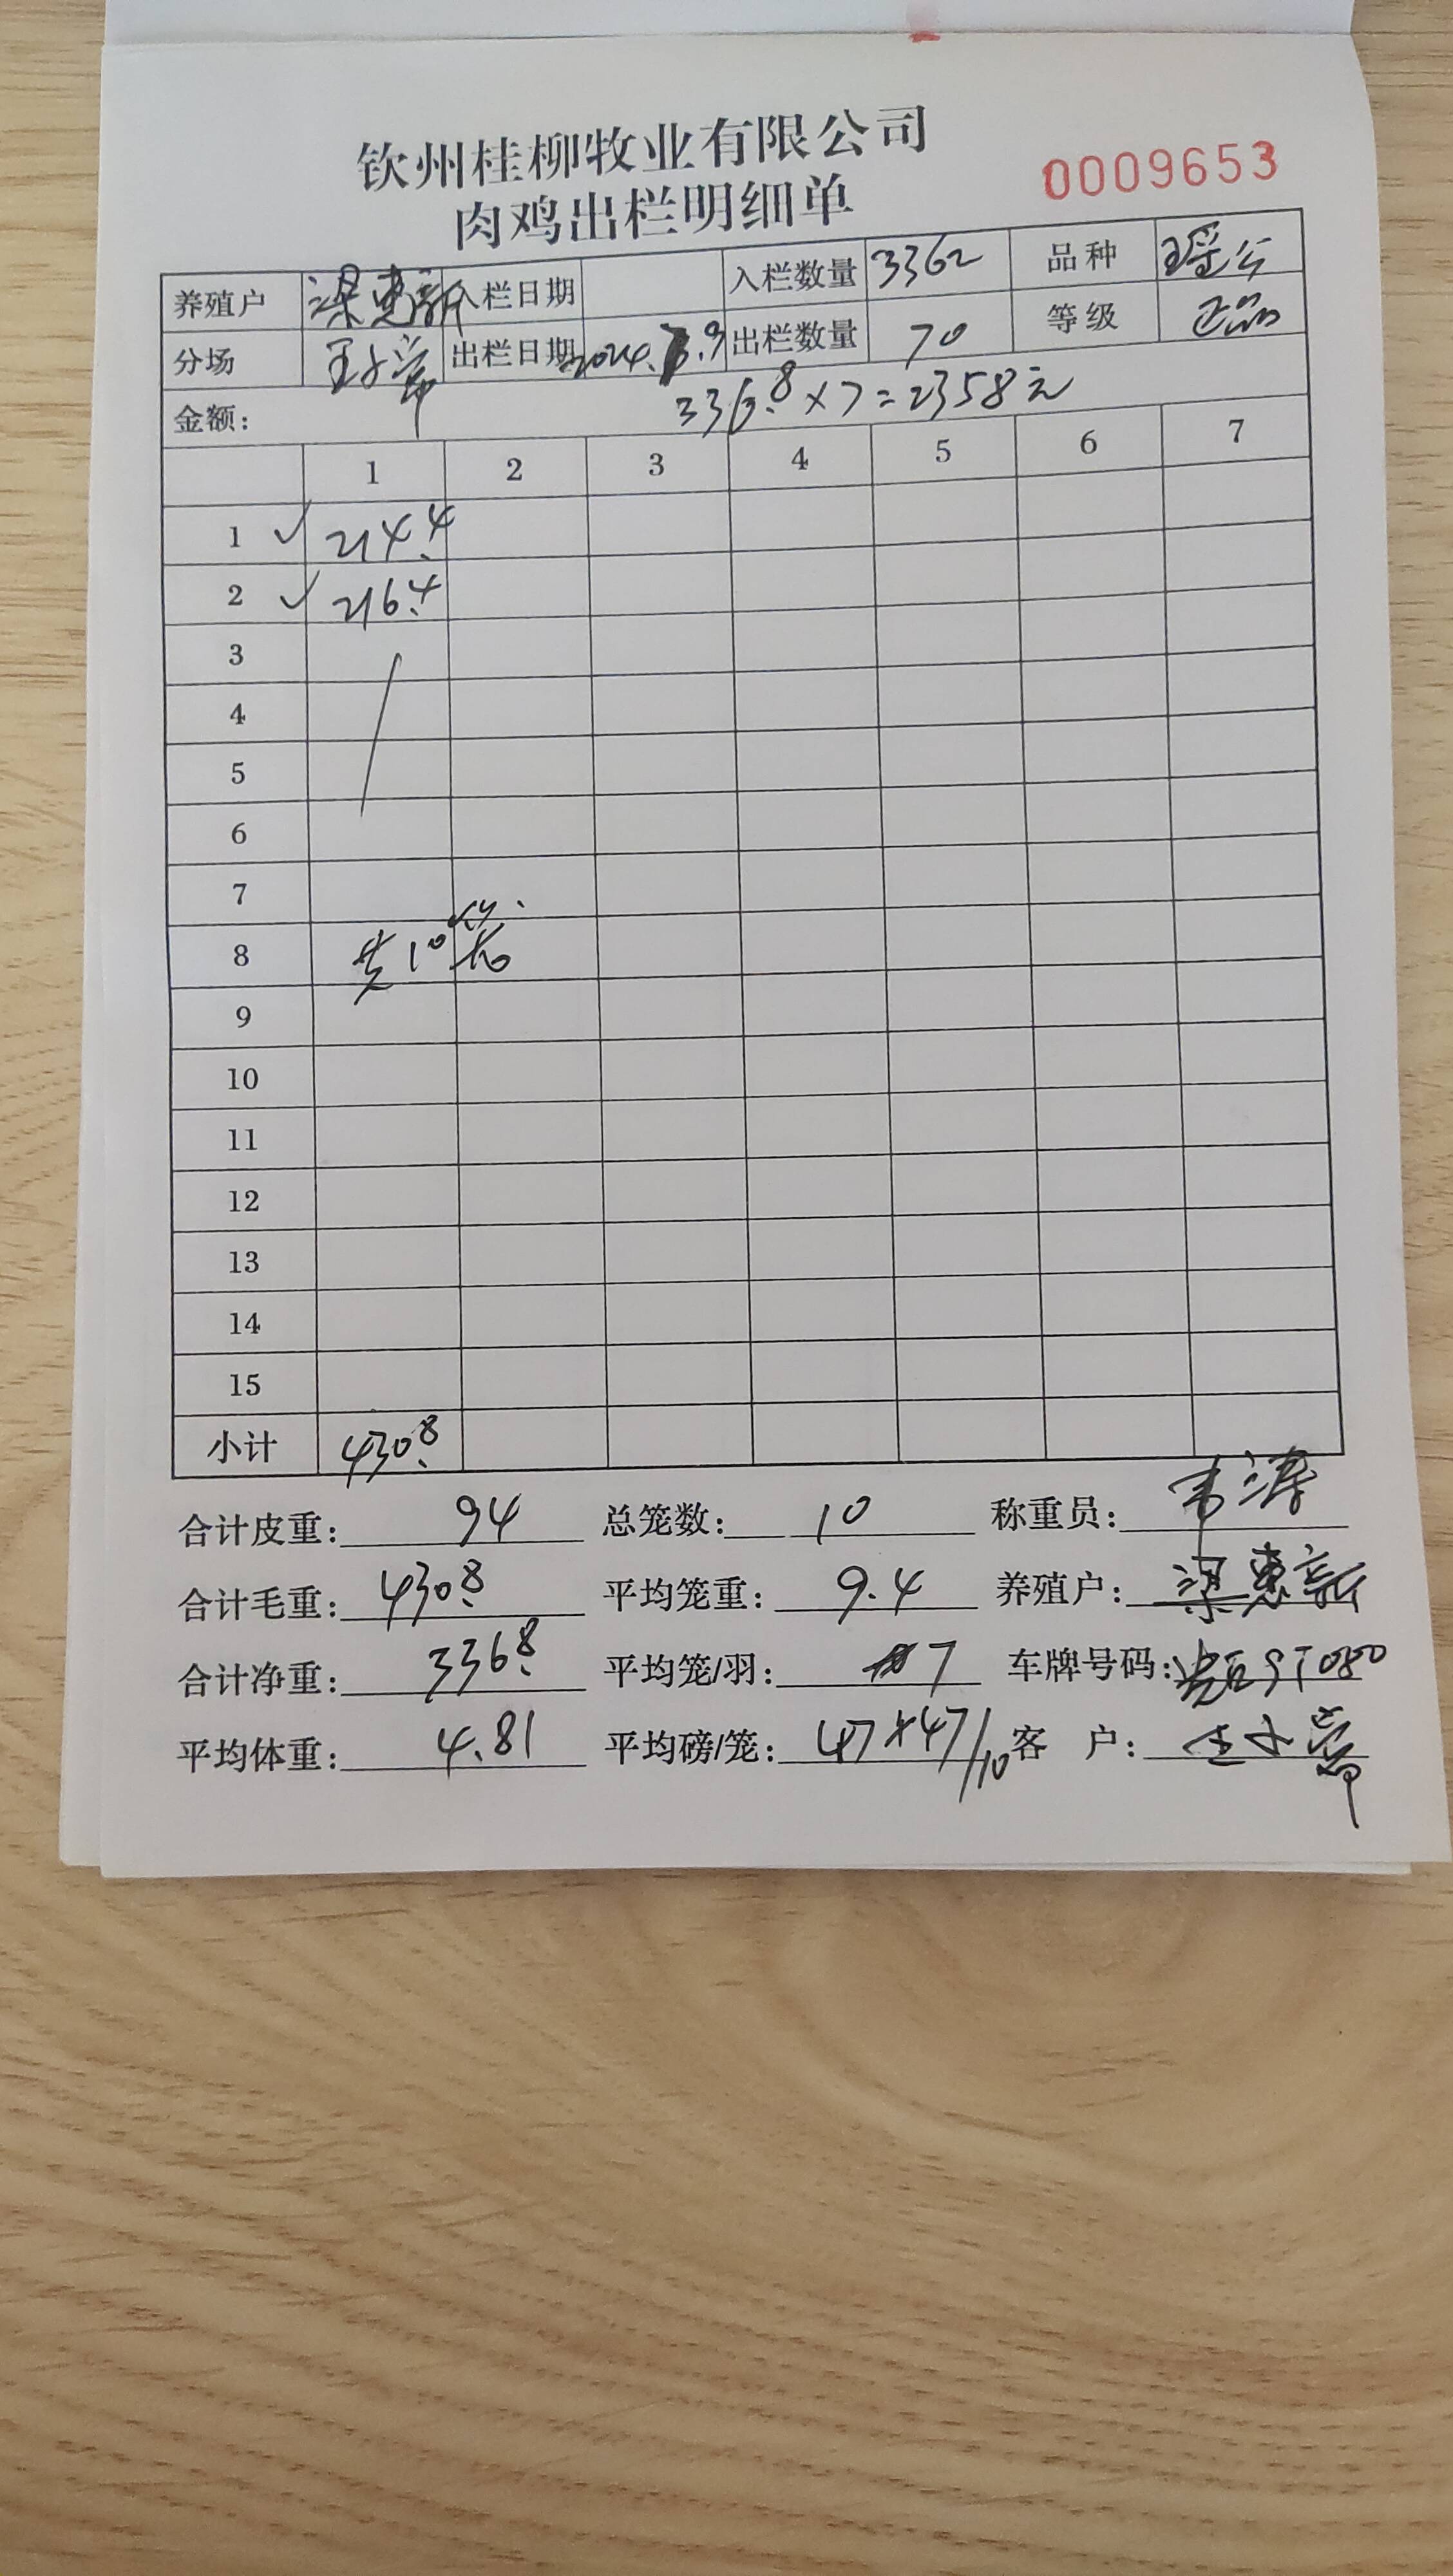 钦州桂柳牧业有限公司
肉鸡出栏明细单
0009653
养殖户 梁惠新 入栏日期 入栏数量 3362 品种 瑶公
分场 出栏日期 2024. .9 出栏数量 70 等级 正品
金额: 336.8×7=2358元
1 2 3 4 5 6 7
1 ✓ 214.4
2 ✓ 216.4
3
4
5
6
7
8 共10笼
9
10
11
12
13
14
15
小计 430.8
合计皮重: 94 总笼数: 10 称重员: 韦涛
合计毛重: 430.8 平均笼重: 9.4 养殖户: 梁惠新
合计净重: 336.8 平均笼/羽: 7 车牌号码:
平均体重: 4.81 平均磅/笼: 47×47/10 客 户: